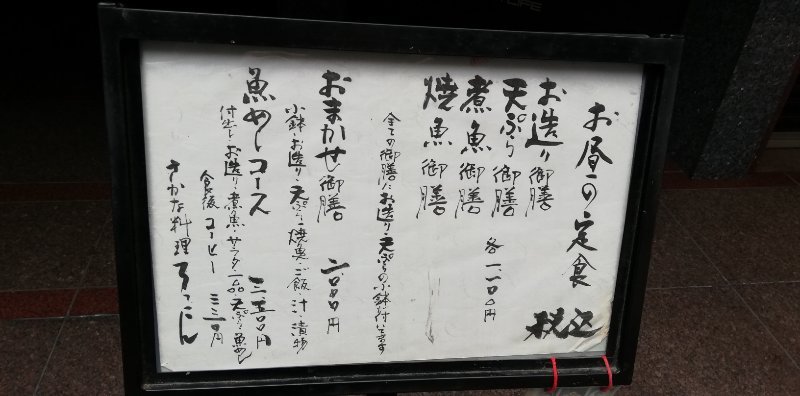 お昼の定食
税込
お造り御膳
天ぷら御膳
煮魚御膳
焼魚御膳
各一、一〇〇円
全ての御膳にお造り・天ぷらの小鉢付いてます
おまかせ御膳 二、〇〇〇円
小鉢・お造り・天ぷら・焼魚・ご飯・汁・漬物
魚めしコース 三、三〇〇円
付出し・お造り・煮魚・サラダ一品・天ぷら・魚めし
食後 コーヒー 三三〇円
さかな料理
LIFE